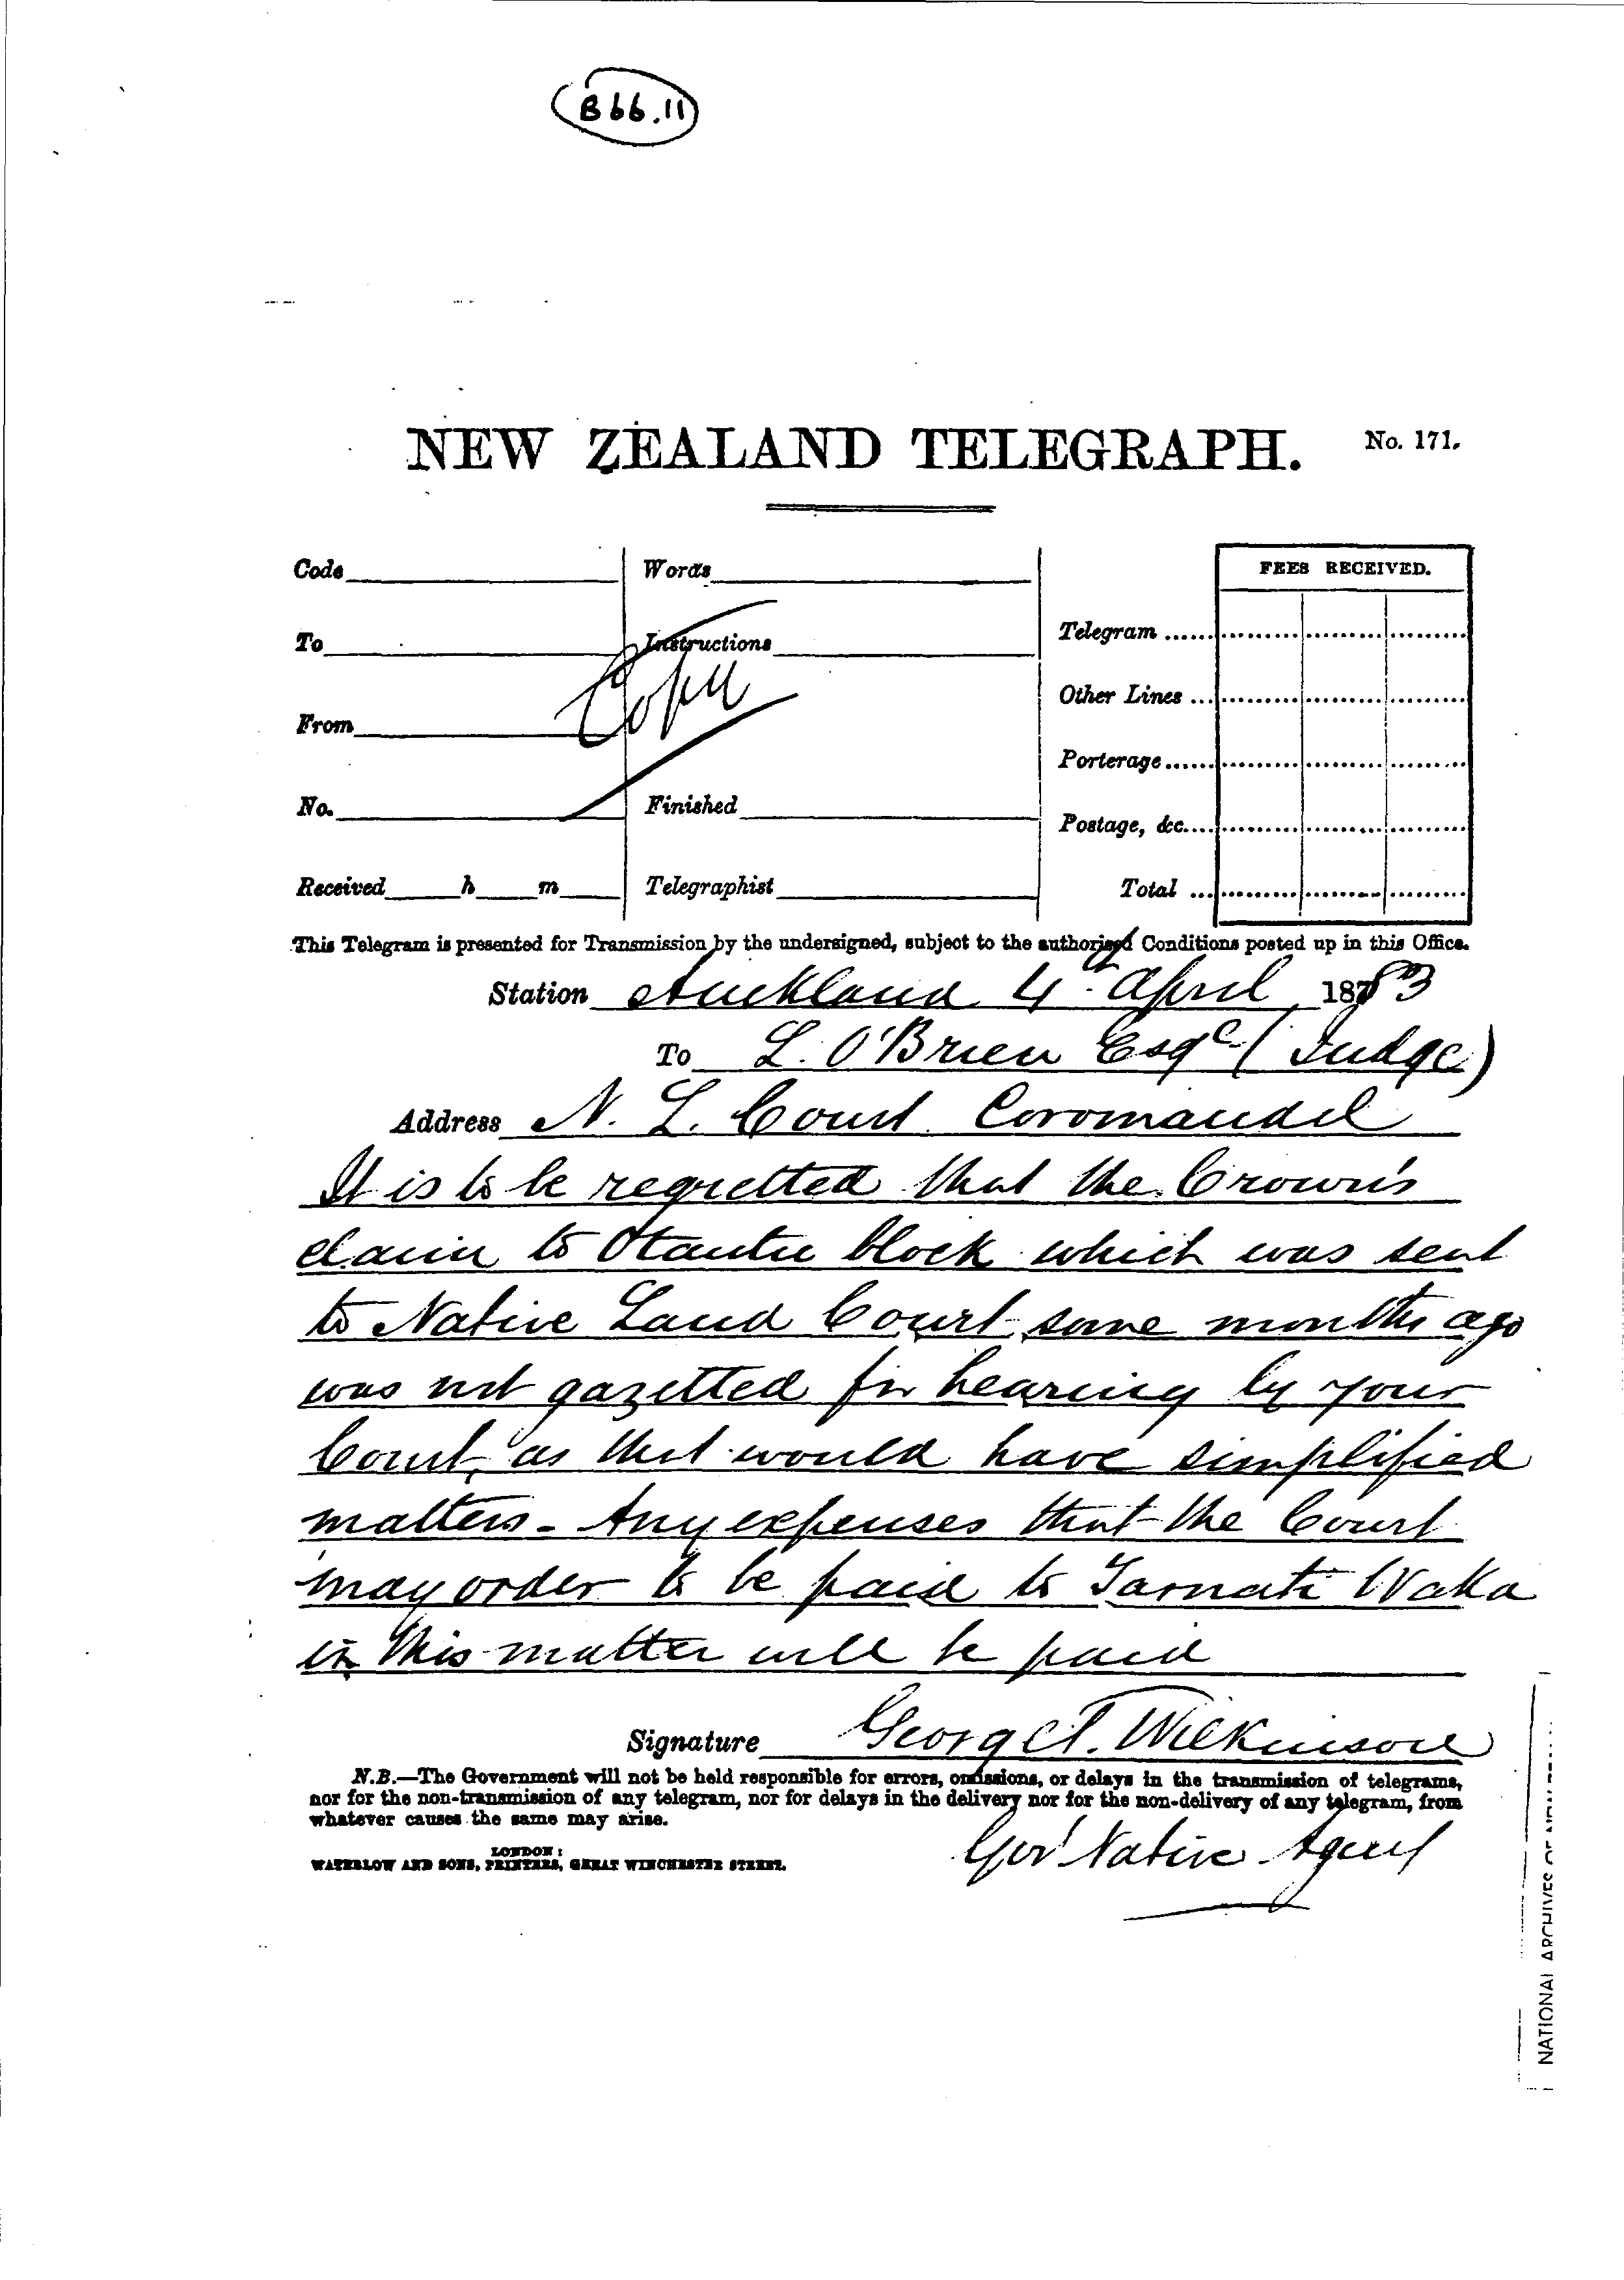 B66.11
NEW ZEALAND TELEGRAPH. No. 171.
Code Words FEES RECEIVED.
To Instructions Telegram ......
Copy
Other Lines ...
From
Porterage......
No. Finished
Postage, &c....
Received h m Telegraphist Total ...
This Telegram is presented for Transmission by the undersigned, subject to the authorised Conditions posted up in this Office.
Station Auckland 4th April 1883
To L. O'Brien Esqre (Judge)
Address N. L. Court Coromandel
It is to be regretted that the Crown's
claim to Otautu block which was sent
to Native Land Court some months ago
was not gazetted for hearing by your
Court, as that would have simplified
matters - Any expenses that the Court
may order to be paid to Tamati Waka
in this matter will be paid
Signature George T. Wilkinson
N.B.—The Government will not be held responsible for errors, omissions, or delays in the transmission of telegrams,
nor for the non-transmission of any telegram, nor for delays in the delivery nor for the non-delivery of any telegram, from
whatever causes the same may arise.
Govt Native Agent
LONDON:
WATERLOW AND SONS, PRINTERS, GREAT WINCHESTER STREET.
NATIONAL ARCHIVES OF